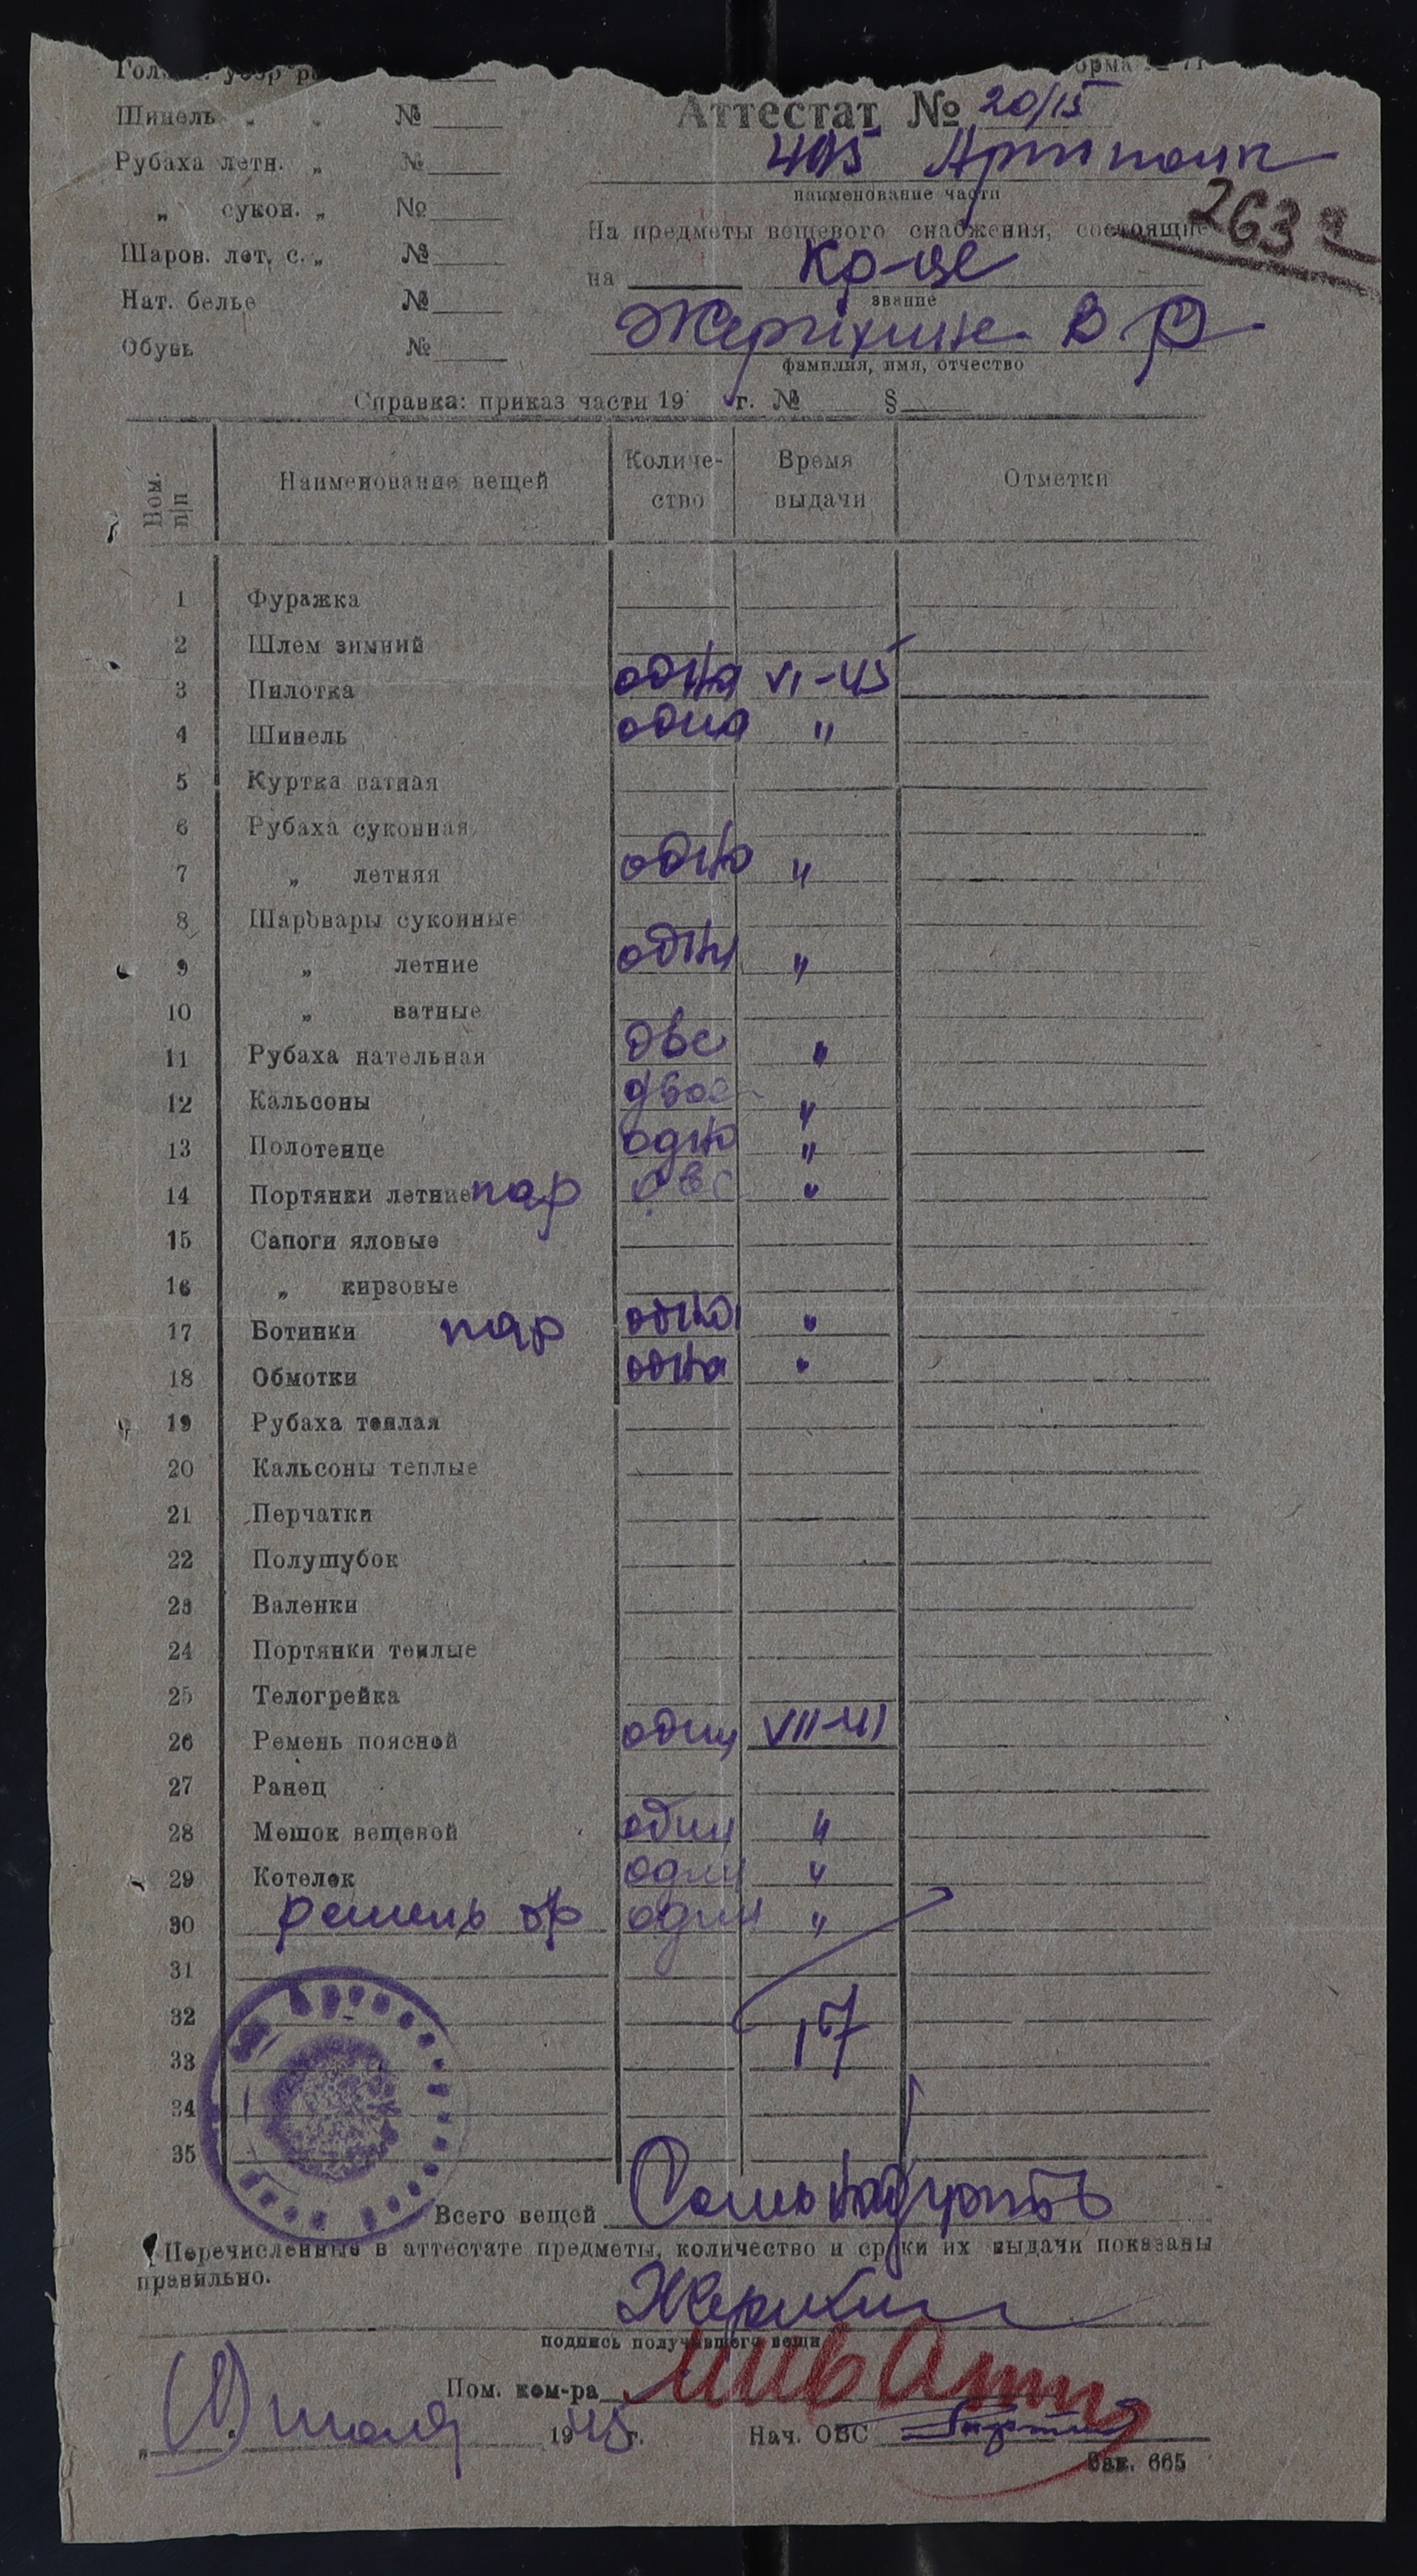 орма № 71
Шинель „ „ № Аттестат № 20/15
Рубаха летн. „ № 495 Артполк
наименование части
„ сукон. „ №
На предметы вещевого снабжения, состоящие 263
Шаров. лет. с. „ №
на Кр-це
звание
Нат. белье №
В. Ф
Обувь №
фамилия, имя, отчество
Справка: приказ части 19 г. № §
Ном. п/п Наименование вещей Количество Время выдачи Отметки
1 Фуражка
2 Шлем зимний
3 Пилотка одна VI-45
4 Шинель одна "
5 Куртка ватная
6 Рубаха суконная
7 „ летняя одна "
8 Шаровары суконные
9 „ летние одни "
10 „ ватные
11 Рубаха нательная две "
12 Кальсоны двое "
13 Полотенце одно "
14 Портянки летние пар две "
15 Сапоги яловые
16 „ кирзовые
17 Ботинки пар одна "
18 Обмотки одна "
19 Рубаха теплая
20 Кальсоны теплые
21 Перчатки
22 Полушубок
23 Валенки
24 Портянки теплые
25 Телогрейка
26 Ремень поясной один VII-41
27 Ранец
28 Мешок вещевой один "
29 Котелок один "
30 ремень бр один "
31
32
17
33
34
35
Всего вещей Семьнадцать
Перечисленные в аттестате предметы, количество и сроки их выдачи показаны
правильно.
Жерихин
подпись получившего вещи
Пом. ком-ра
1945 г. Нач. ОВС
Зак. 665